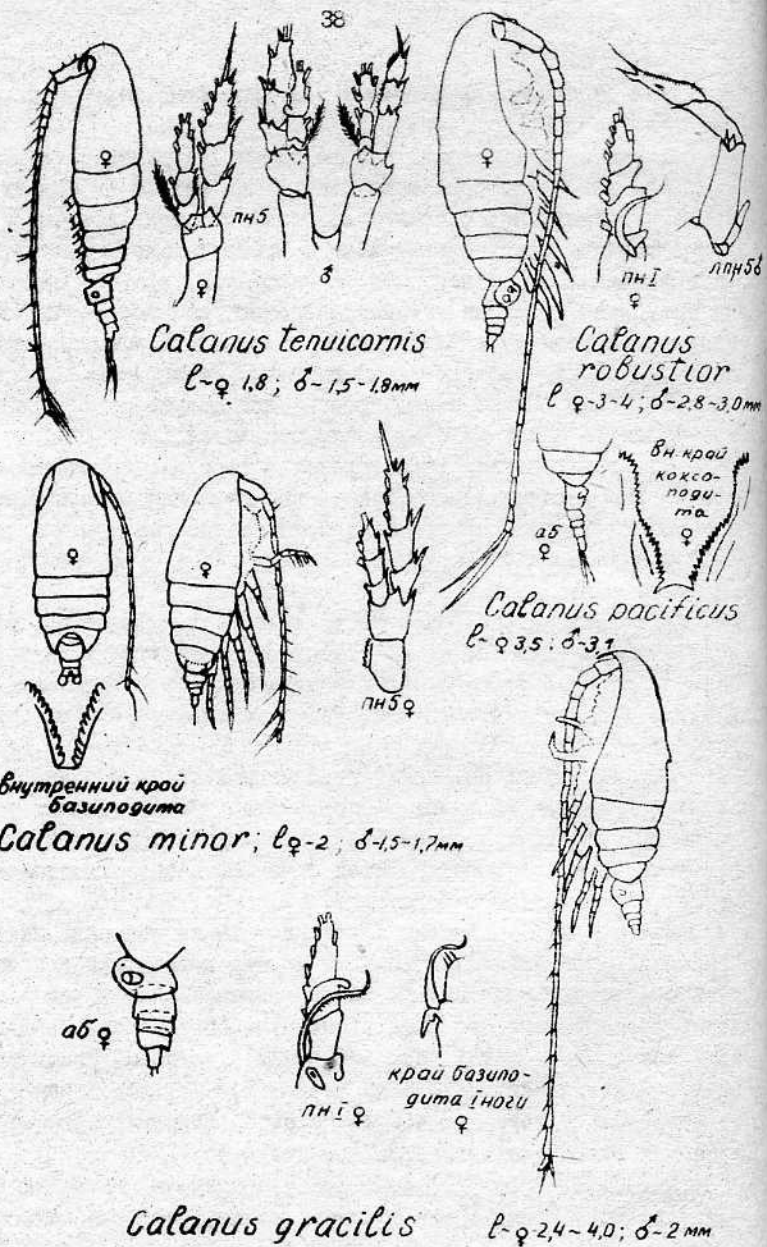 38
♀
пн5
♀
♂
♀
пн I
♀
лпн5♂
Calanus tenuicornis
l~♀ 1,8; ♂~1,5-1,8мм
Calanus
robustior
l ♀-3-4; ♂-2,8-3,0мм
♀
♀
пн5♀
аб
♀
вн. край
коксо-
поди-
та
♀
Calanus pacificus
l~♀3,5; ♂-3,1
внутренний край
базиподита
Calanus minor; l♀-2; ♂-1,5-1,7мм
аб♀
пн I ♀
край базипо-
дита I ноги
♀
Calanus gracilis l-♀-2,4~4,0; ♂~2 мм